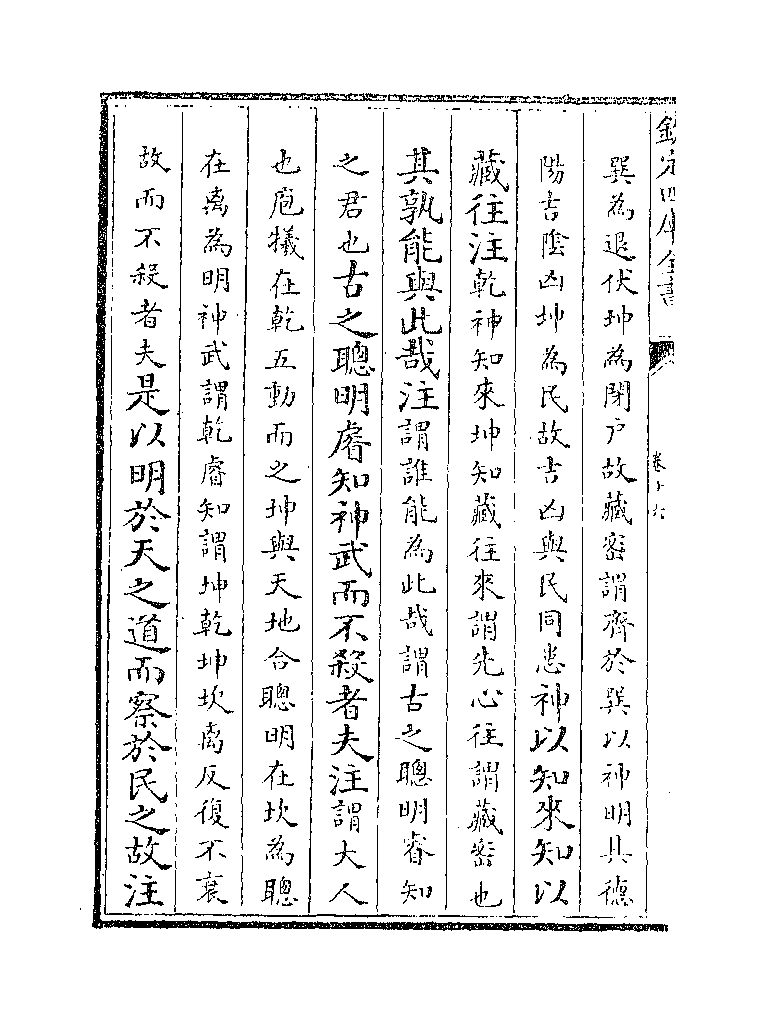 欽定四庫全書
卷十六
巽為退伏坤為閉户故藏密謂齊於巽以神明其德
陽吉陰凶坤為民故吉凶與民同患神以知來知以
藏往注乾神知來坤知藏往來謂先心往謂藏密也
其孰能與此哉注謂誰能為此哉謂古之聰明睿知
之君也古之聰明睿知神武而不殺者夫注謂大人
也庖犧在乾五動而之坤與天地合聰明在坎為聰
在离為明神武謂乾睿知謂坤乾坤坎离反復不衰
故而不殺者夫是以明於天之道而察於民之故注